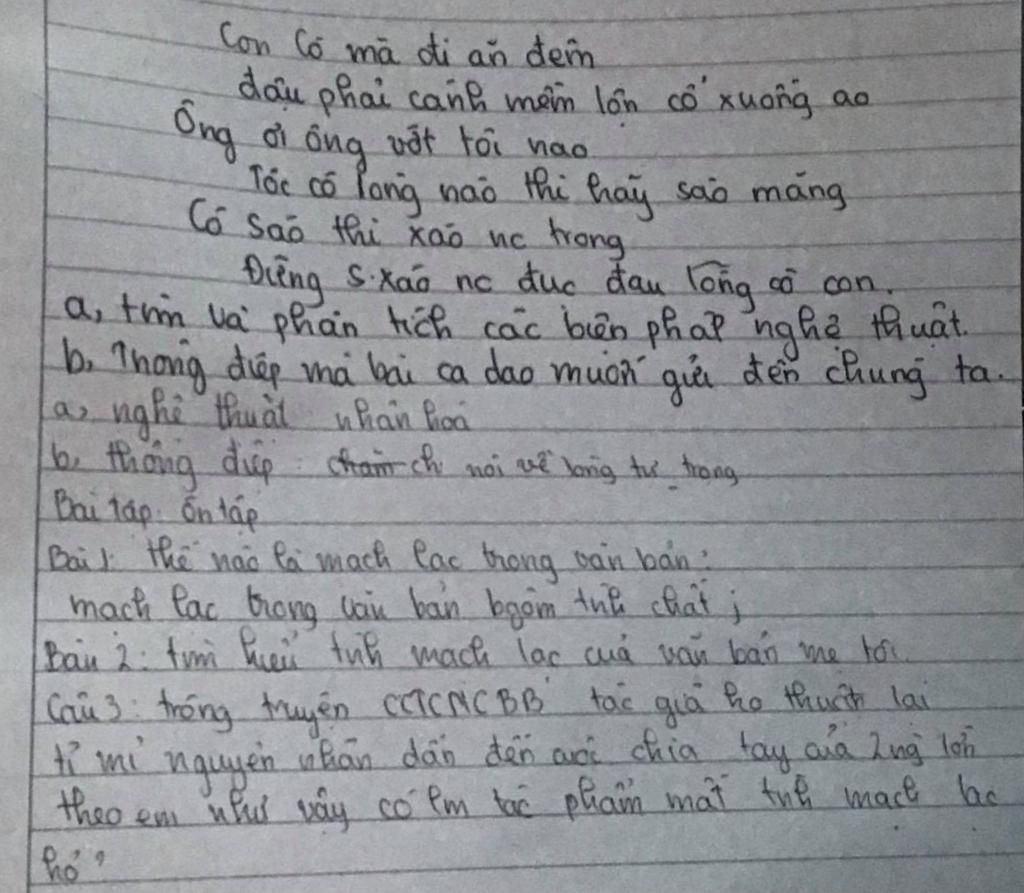 Con Cò mà đi ăn đêm
đậu phải cành mềm lộn cổ xuống ao
Ông ơi ông vớt tôi nao
Tôc có lòng nào thì hãy sáo măng
Có sáo thì xáo nc trong
Đừng s.xáo nc đục đau lòng cò con.
a, tìm và phân tích các biện pháp nghệ thuật.
b, Thông điệp mà bài ca dao muốn gửi đến chúng ta.
a, nghệ thuật nhân hoá
b, thông điệp : nói về lòng tự trọng
Bài tập ôn tập
Bài 1: thế nào là mạch lạc trong văn bản:
mạch lạc trong văn bản bgồm tính chất ;
Bài 2: tìm hiểu tính mạch lạc của văn bản mẹ tôi
Câu 3: trong truyện CCTCNCBB tác giả ko thuật lại
tỉ mỉ nguyên nhân dẫn đến cuộc chia tay của 2 ng lớn
theo em như vậy có lm tác phẩm mất tính mạch lạc
hố?